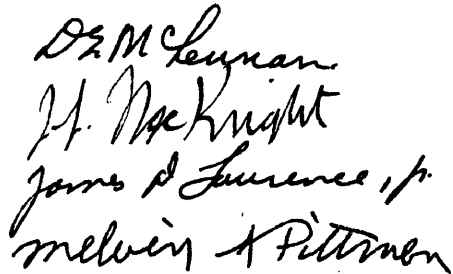 D E McLennan
J. J. MacKnight
James D Lawrence, Jr.
Melvin A Pittman